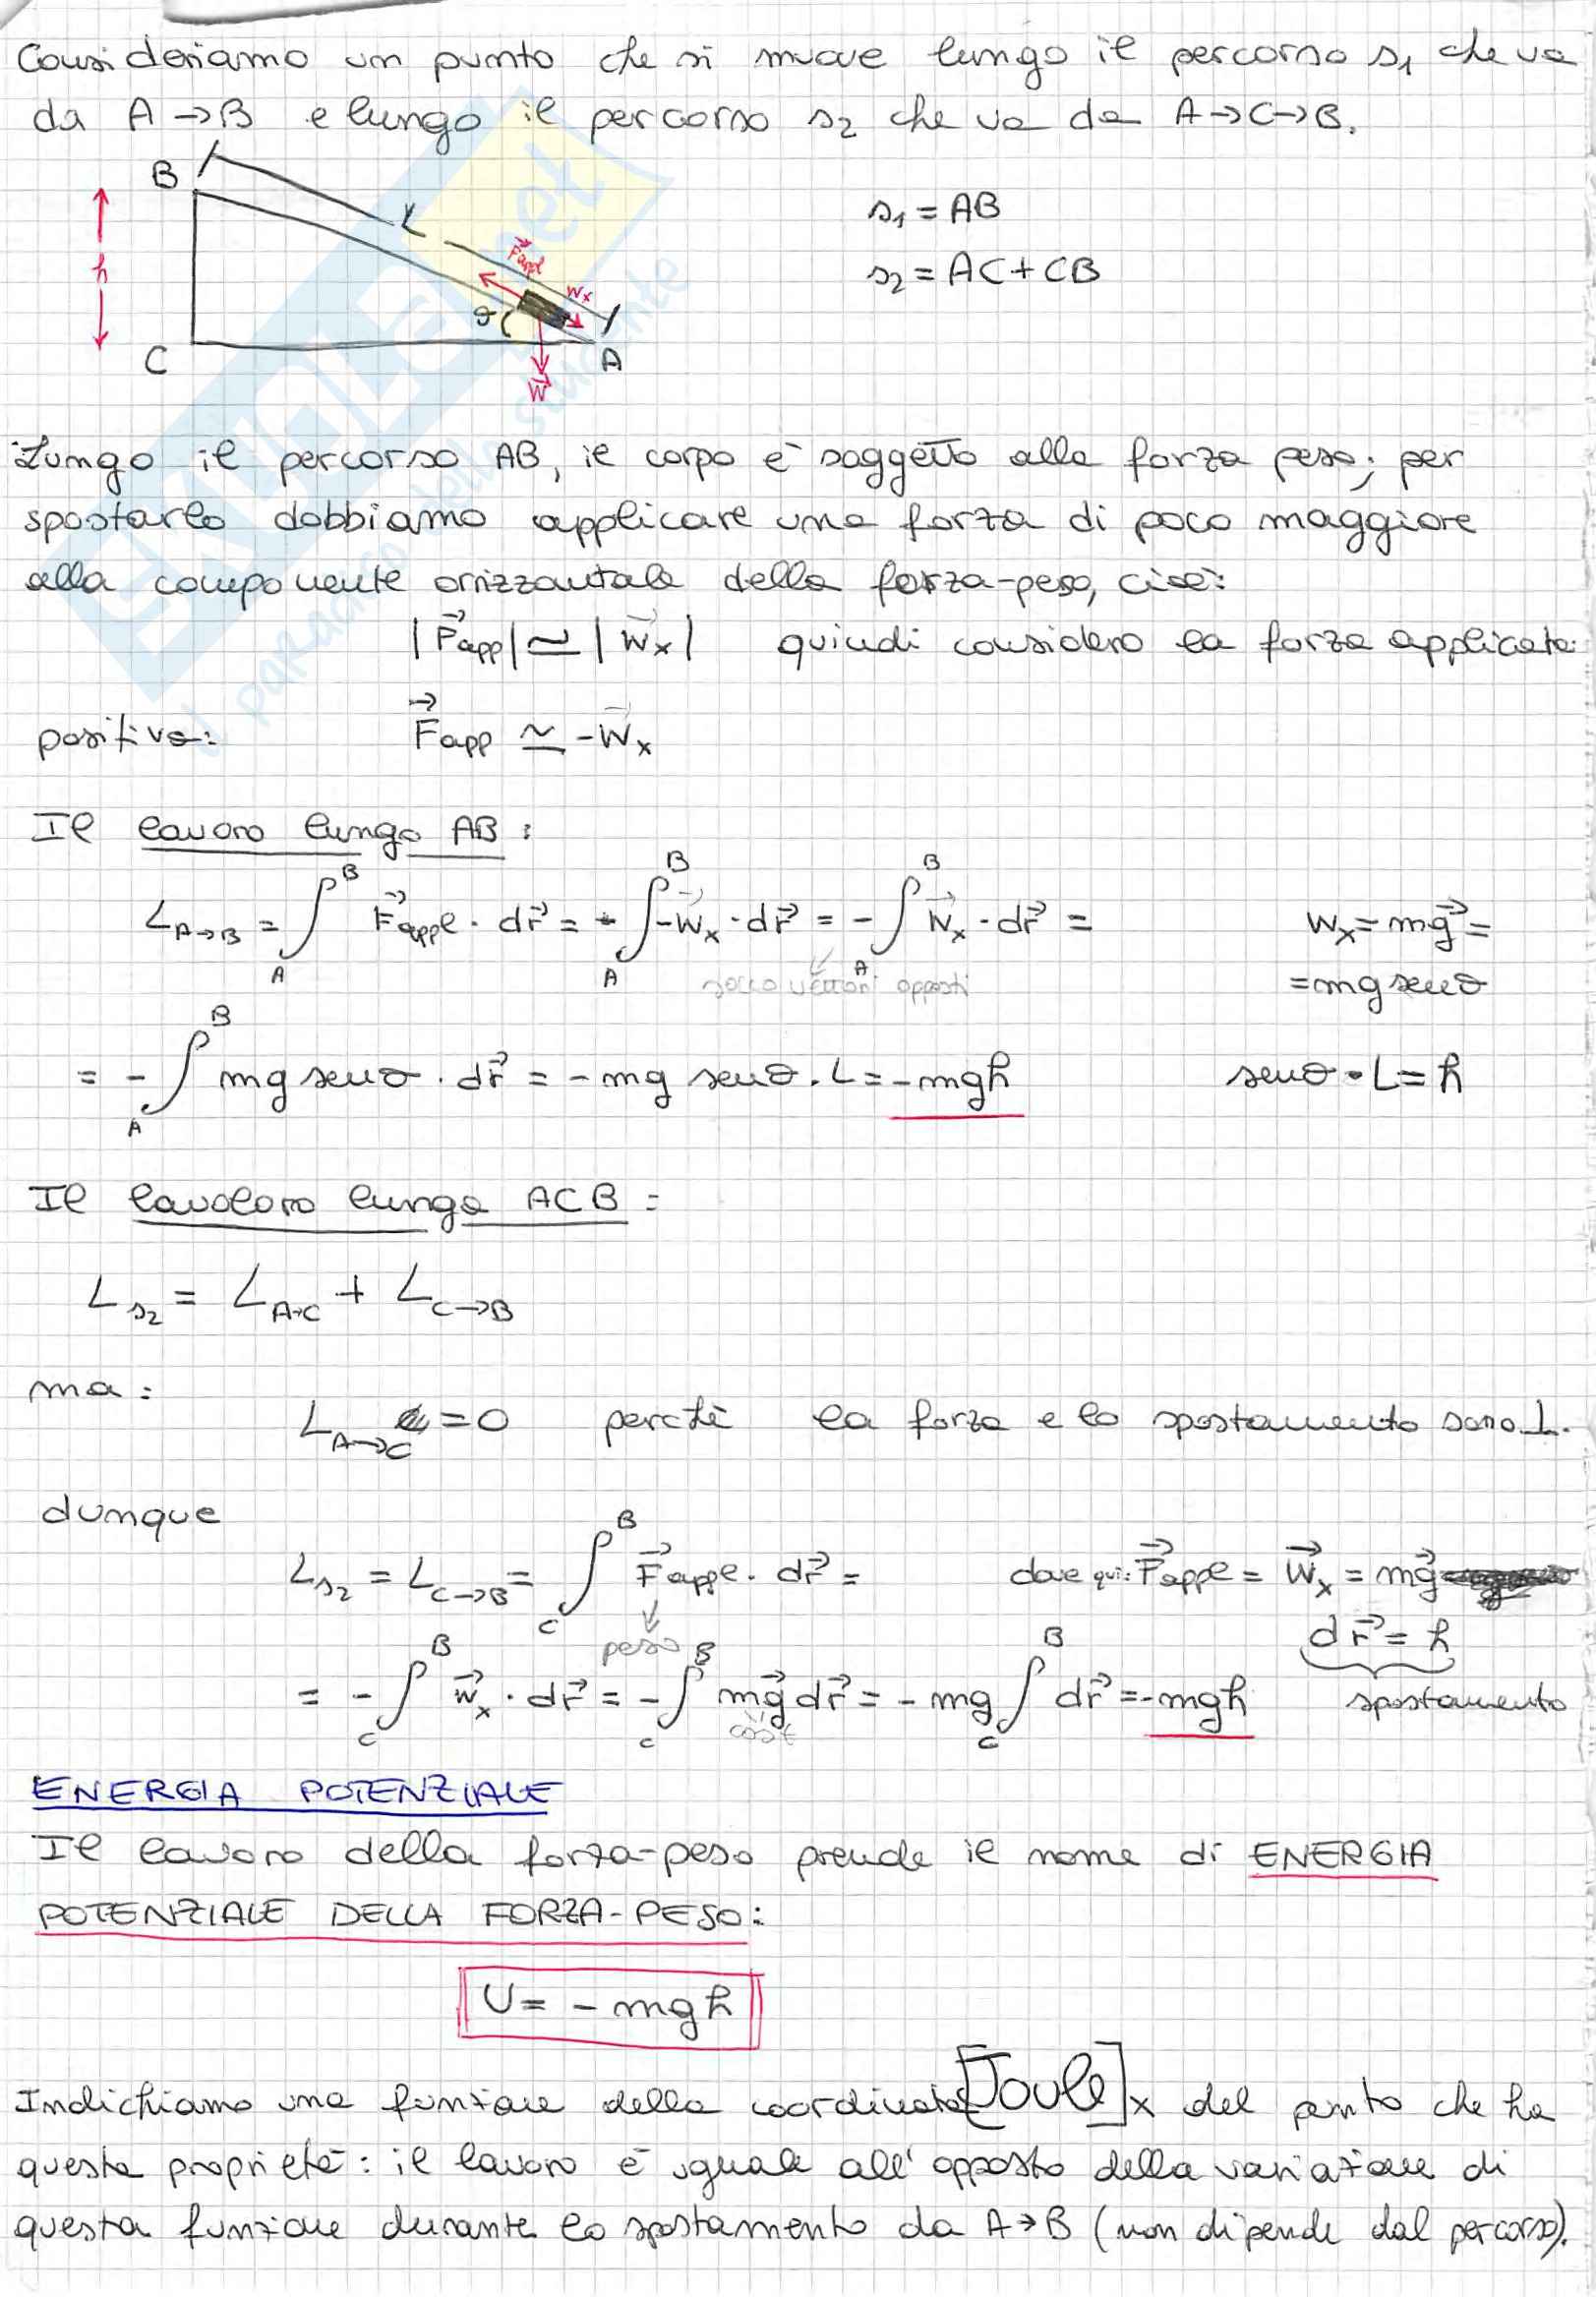 Consideriamo un punto che si muove lungo il percorso s₁ che va
da A→B e lungo il percorso s₂ che va da A→C→B.
B
L
s₁ = AB
s₂ = AC + CB
h
F⃗appl
Wx
θ
C
A
W⃗
Lungo il percorso AB, il corpo è soggetto alla forza peso; per
spostarlo dobbiamo applicare una forza di poco maggiore
alla componente orizzontale della forza-peso, cioè:
|F⃗app| ≃ |W⃗x| quindi considero la forza applicata
positiva: F⃗app ≃ -W⃗x
Il lavoro lungo AB:
L A→B = ∫_A^B F⃗appl · dr⃗ = - ∫_A^B -W⃗x · dr⃗ = - ∫_A^B W⃗x · dr⃗ = Wx = mg⃗ =
sono vettori opposti = mg senθ
= - ∫_A^B mg senθ · dr⃗ = -mg senθ · L = -mgh senθ · L = h
Il lavoloro lungo ACB:
L s₂ = L A→C + L C→B
ma:
L A→C = 0 perché la forza e lo spostamento sono ⊥.
dunque
L s₂ = L C→B = ∫_C^B F⃗appl · dr⃗ = dove qui: F⃗appl = W⃗x = mg⃗
peso dr⃗ = h
= - ∫_C^B W⃗x · dr⃗ = - ∫_C^B mg⃗ dr⃗ = -mg ∫_C^B dr⃗ = -mgh spostamento
cost
ENERGIA POTENZIALE
Il lavoro della forza-peso prende il nome di ENERGIA
POTENZIALE DELLA FORZA-PESO:
U = - mgh
[Joule]
Indichiamo una funzione della coordinata x del punto che ha
questa proprietà: il lavoro è uguale all'opposto della variazione di
questa funzione durante lo spostamento da A→B (non dipende dal percorso).
SKUOLA.net
il paradiso dello studente